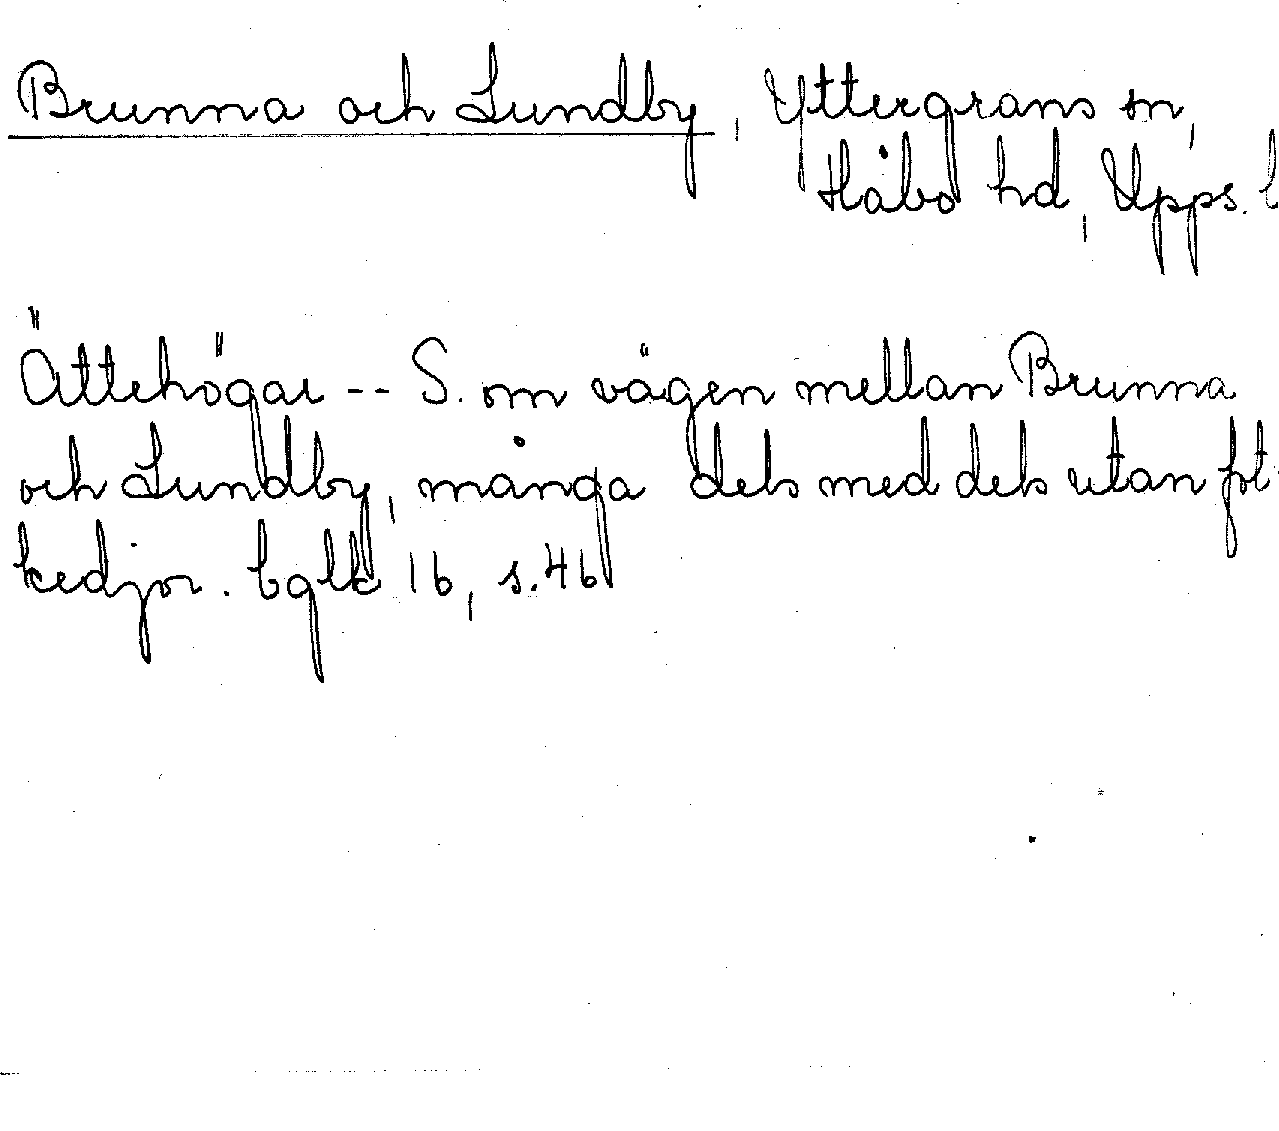 Brunna och Lundby, Yttergrans sn,
Håbo hd, Upps. l
Ättehögar -- S. om vägen mellan Brunna
och Lundby, många dels med dels utan fot
kedjor. bglk 16, s. 46